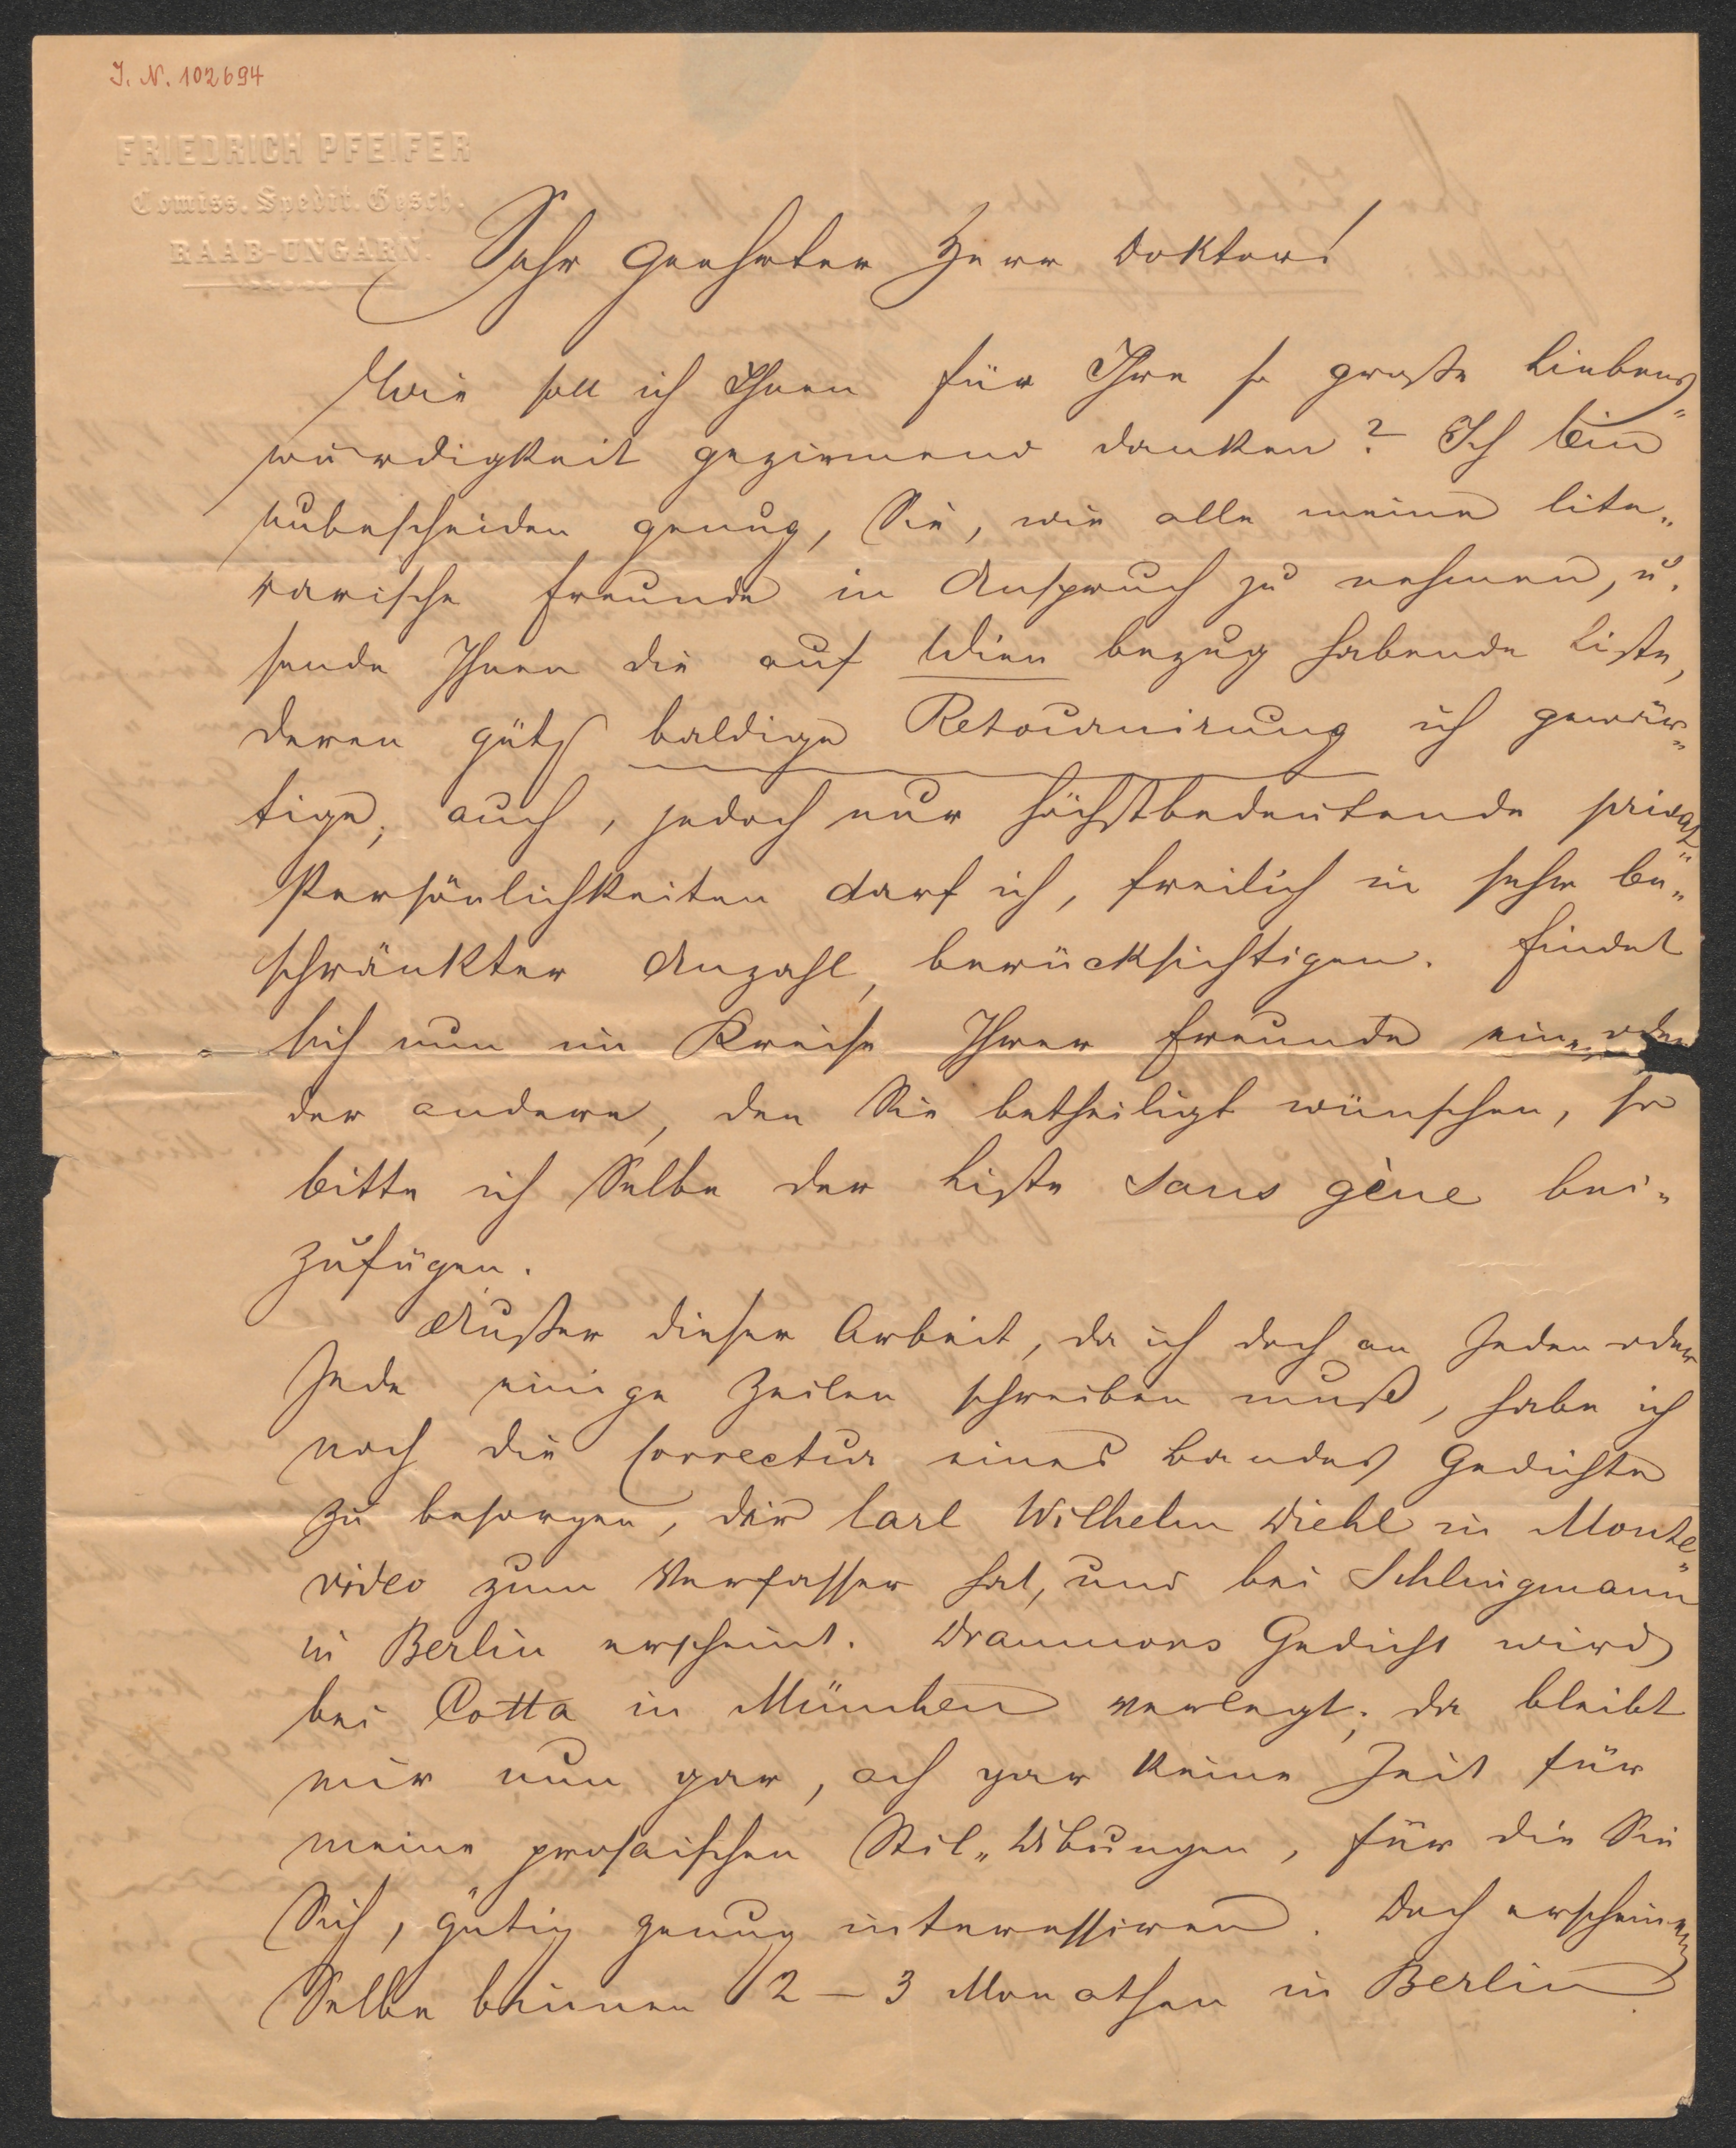 I. N. 102694
FRIEDRICH PFEIFER
Comiss. Spedit. Gesch.
RAAB-UNGARN.
Sehr geehrter Herr Doktor!
Wie soll ich Ihnen für Ihre so große Liebens„
würdigkeit geziemend danken? Ich bin
unbescheiden genug, Sie, wie alle meine lite„
rarische Freunde in Anspruch zu nehmen, u.
sende Ihnen die auf Wien bezug habende Liste,
deren gütig baldige Retournirung ich gewär„
tige; auch, jedoch nur höchstbedeutende privat„
Persönlichkeiten darf ich, freilich in sehr be„
schränkter Anzahl, berücksichtigen. Findet
sich nun im Kreise Ihrer Freunde eine oder
der andere, den Sie betheiligt wünschen, so
bitte ich Selbe der Liste sans gène bei„
zufügen.
Außer dieser Arbeit, da ich doch an Jeden oder
Jede einige Zeilen schreiben muß, habe ich
noch die Correctur eines Bandes Gedichte
zu besorgen, der Carl Wilhelm Diehl in Monte„
video zum Verfasser hat, und bei Schlingmann
in Berlin erscheint. Dranmors Gedicht wird
bei Cotta in München verlegt; da bleibt
mir nun gar, ach gar keine Zeit für
meine prosaischen Stil„Übungen, für die Sie
Sich, gütig genug interessiren. Doch erscheinen
Selbe binnen 2–3 Monathen in Berlin